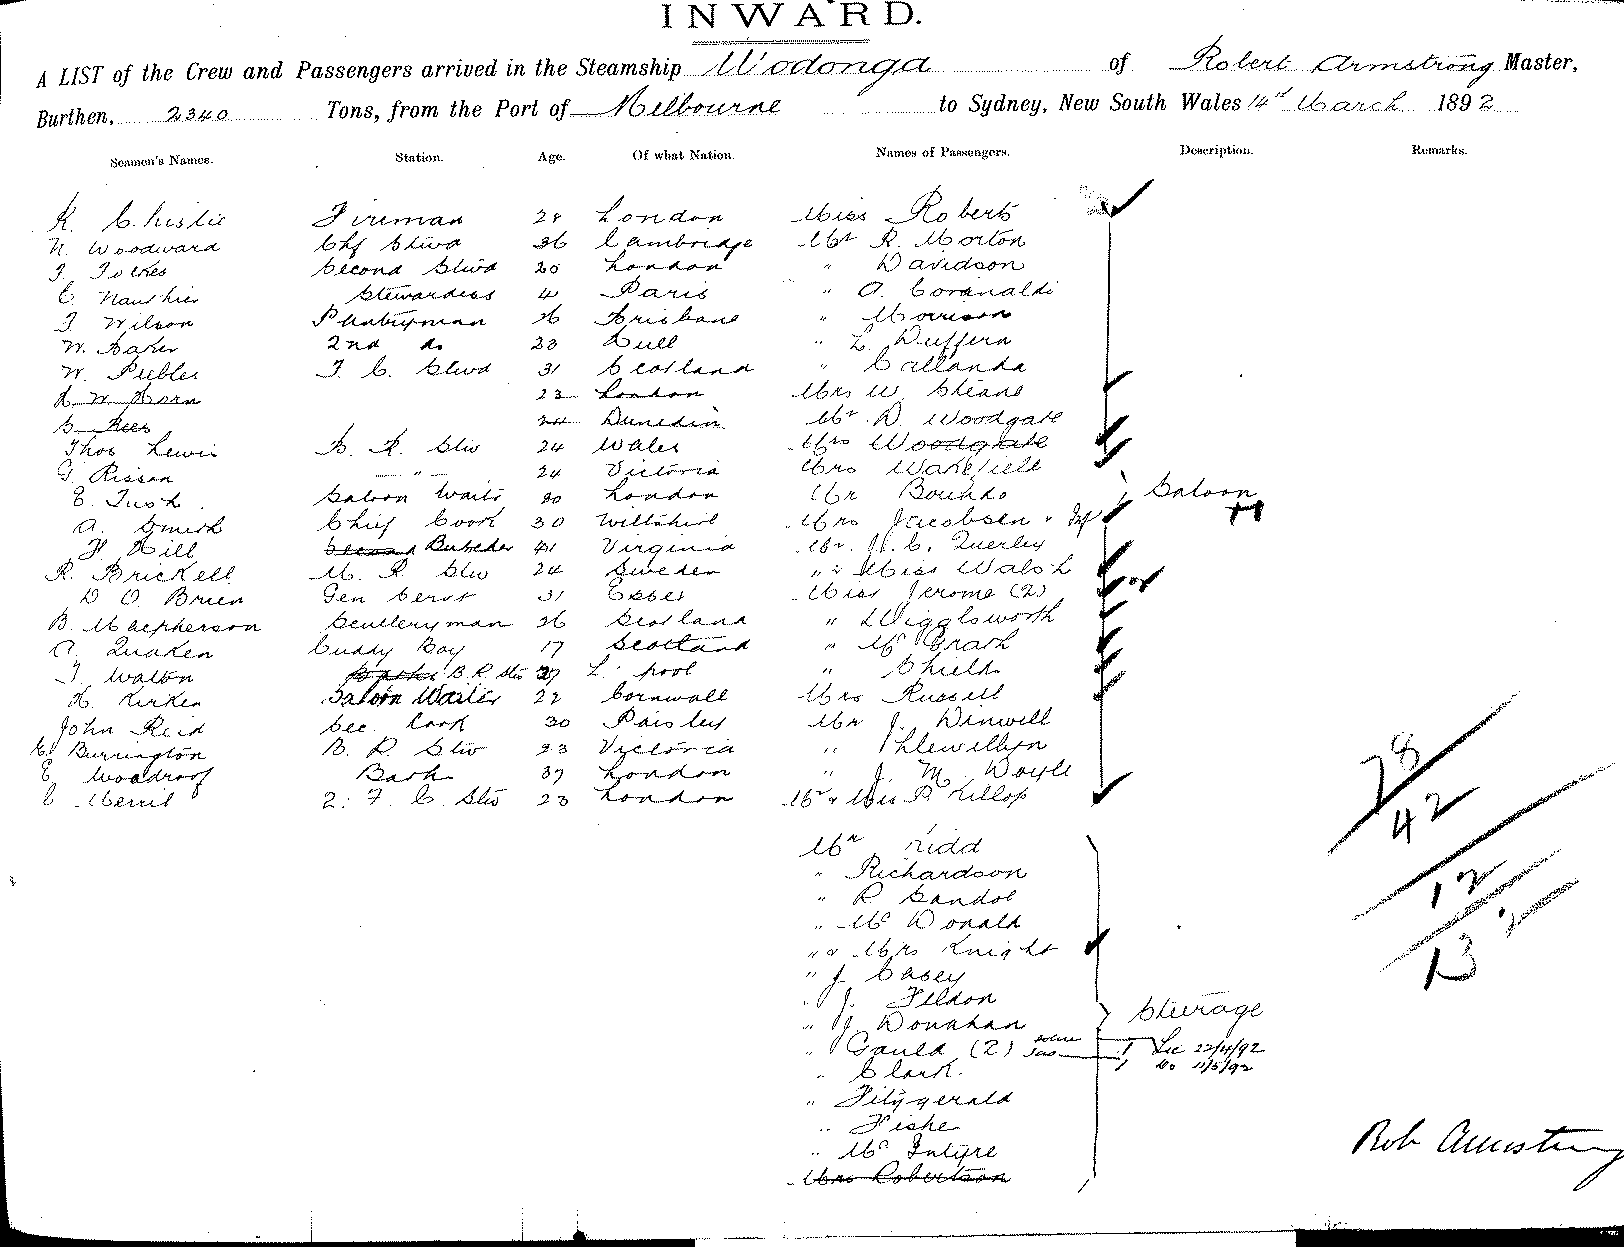 INWARD.
A LIST of the Crew and Passengers arrived in the Steamship Wodonga of Robert Armstrong Master,
Burthen, 2340 Tons, from the Port of Melbourne to Sydney, New South Wales 14th March 1892
Seamen's Names. Station. Age. Of what Nation. Names of Passengers. Description. Remarks.
R. Christie Fireman 28 London Miss Roberts
N. Woodward Chf Stwd 36 Cambridge Mr R. Morton
Second Stwd London " Davidson
Stewardess Paris " Coranaldi
J. Wilson Pantryman 26 Brisbane " Morrison
W. Baker 2nd do 23 Hull " L. Dufferin
W. Peebles F. C. Stwd 31 Scotland " Callanda
W. Horn 23 London Mrs W. Sheane
Rees 24 Dunedin Mr D. Woodgate
Thos Lewis B. R. Stw 24 Wales Mrs Woodgate
G. Risson " 24 Victoria Mrs Wakefield
E. Tush Saloon Waiter London Mr
A. Smith Chief Cook 30 Wiltshire Mrs Jacobsen & Inf
Hill Second Butcher 41 Virginia Mr. Querley
R. Brickell M. R. Stw 24 Sweden " & Miss Walsh
D O. Brien Gen Servt 31 Essex Miss Jerome (2)
B. Macpherson Scullery man 26 Scotland " Wigglsworth
A. Quaken Cuddy Boy 17 Scotland " McGrath
J. Walton B. R. Stw L. pool " Shields
H. Kirken Saloon Waiter 22 Cornwall Mrs Russell
John Reid Sec. Cook 30 Paisley Mr J. Winwell
C. Burrington B. R. Stw 23 Victoria " Llewellyn
E. Woodroof Bark 37 London " J. M. Doyle
C. Merril 2. F. C. Stw 23 London Mr & Mrs Killop
Saloon
Mr Kidd
" Richardson
" R Sandol
" Mc Donald
" & Mrs Knight
" J. Casey
" J. Feldon
" J. Donahan
" Gauld (2)
" Clark
" Fitzgerald
" Fisher
" Mc Intyre
Mrs Robertson
Steerage
1 Lic 22/4/92
1 Do 11/5/92
78
42
12
132
Rob Armstrong